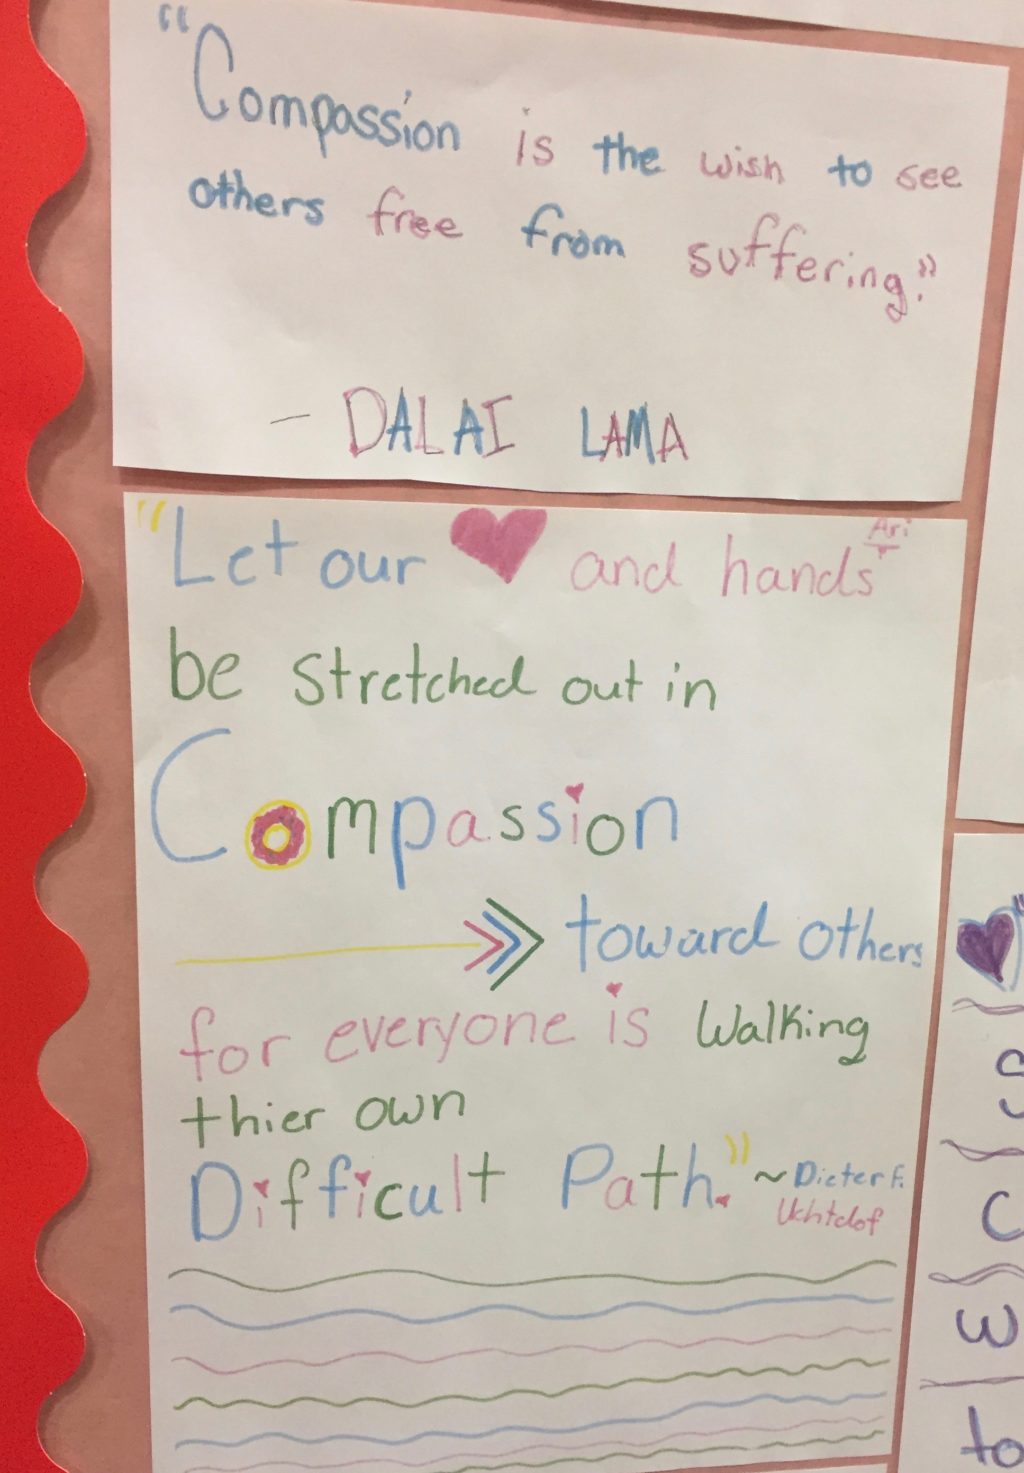 "Compassion is the wish to see
others free from suffering."
- DALAI LAMA
Ari
"Let our ♥ and hands
be stretched out in
Compassion
toward others
for everyone is Walking
thier own
Difficult Path." ~Dieter F.
Uchtdof
S
C
w
to